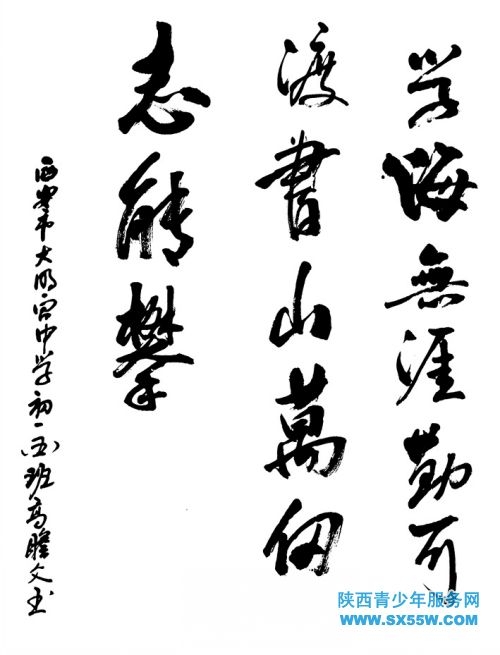 学海無涯勤可
渡書山萬仞
志能攀
西安市大明宫中学初一五班高瞻文书
陕西青少年服务网
www.sx55w.com